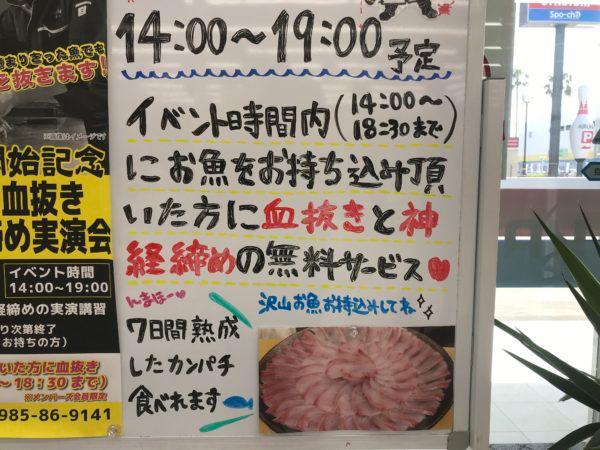 14:00〜19:00 予定
イベント時間内(14:00〜
18:30まで)
にお魚をお持ち込み頂
いた方に血抜きと神
経締めの無料サービス♥
んまほー♥
沢山お魚お持込みしてね
7日間熟成
したカンパチ
食べれます
まりきった魚でも
を抜きます!
※画像はイメージです
開始記念
血抜き
締め実演会
イベント時間
14:00~19:00
経締めの実演講習
り次第終了
お持ちの方)
いた方に血抜き
~18:30まで)
※メンバーズ会員限定
985-86-9141
Spo-cha
P